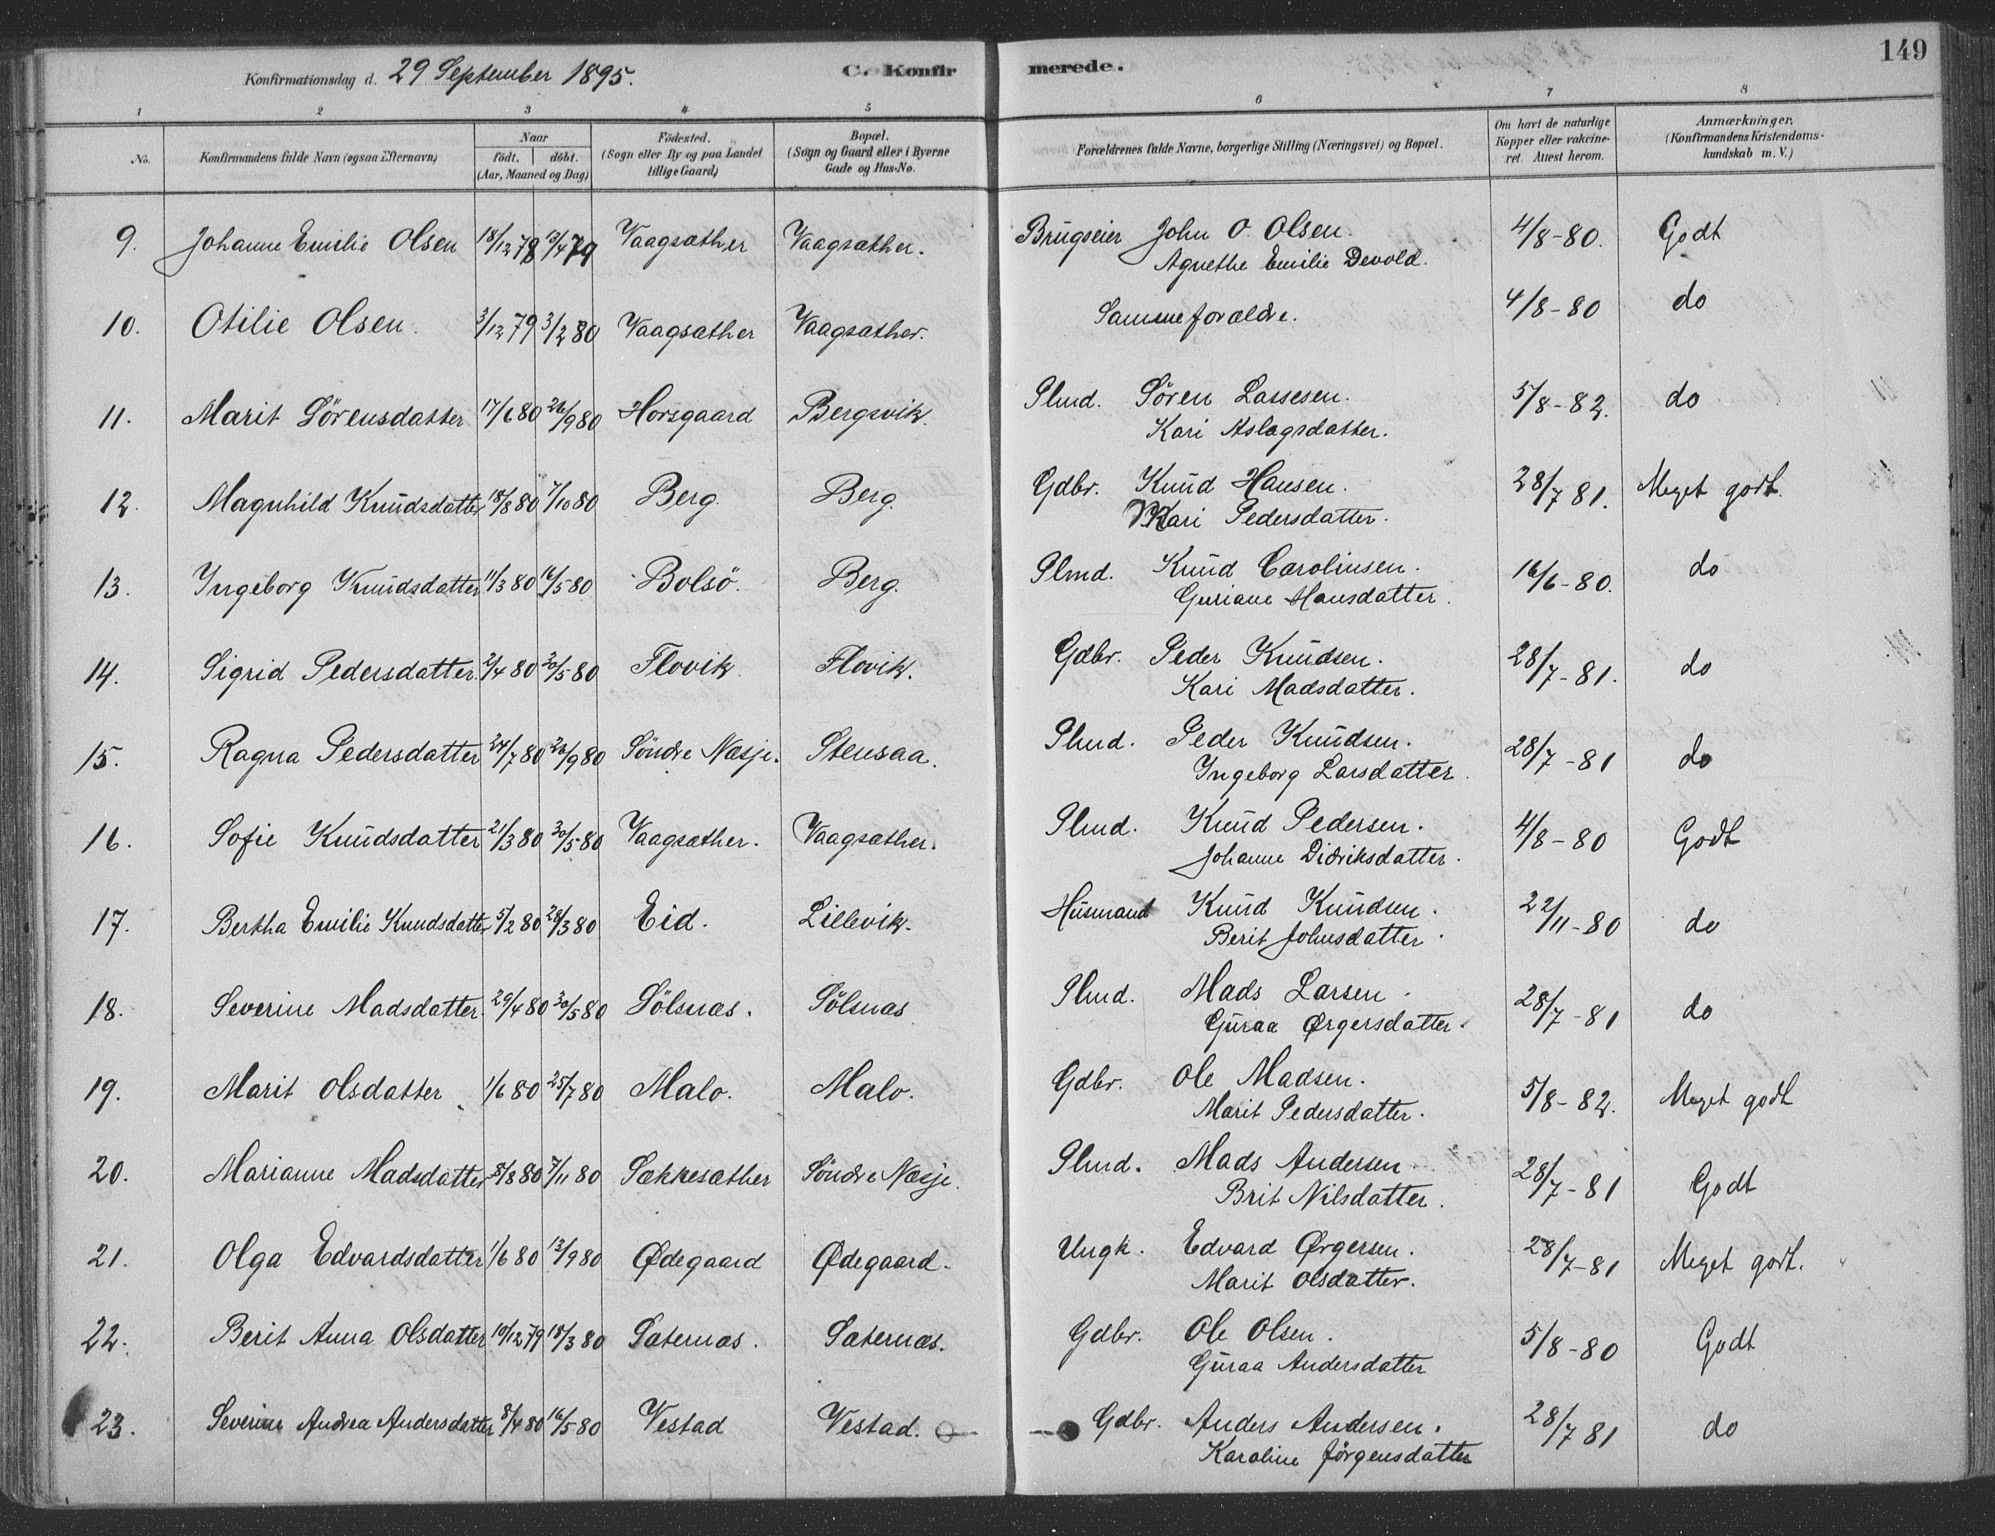 149
Konfirmationsdag d. 29 September 1895.
C. Konfirmerede.
1 2 3 4 5 6 7 8
No. | Konfirmandens fulde Navn (ogsaa Efternavn) | Naar födt. döbt. (Aar, Maaned og Dag) | Födested. (Sogn eller By og paa Landet tillige Gaard) | Bopæl. (Sogn og Gaard eller i Byerne Gade og Hus-No. | Forældrenes fulde Navne, borgerlige Stilling (Næringsvei) og Bopæl. | Om havt de naturlige Kopper eller vakcineret. Attest herom. | Anmærkninger, (Konfirmandens Kristendomskundskab m. V.)
9. Johanne Emilie Olsen 18/12 78 13/4 79 Vaagsæther Vaagsæther. Brugseier John O. Olsen. 4/8-80. Godt
Agnethe Emilie Devold.
10. Otilie Olsen. 3/12 79 3/2 80 Vaagsæther Vaagsæther. Samme forældre. 4/8-80 do
11. Marit Sörensdatter 17/6 80 26/9 80 Horsgaard Bergsvik. Plmd. Sören Lassesen. 5/8-82. do
Kari Aslagsdatter.
12. Magnhild Knudsdatter 18/8 80 7/10 80 Berg. Berg. Gdbr. Knud Hansen. 28/7 81. Meget godt.
Kari Pedersdatter.
13. Ingeborg Knudsdatter 11/3 80 16/5 80 Bolsö. Berg. Plmd. Knud Carolinsen. 16/6-80. do
Guriane Hansdatter.
14. Sigrid Pedersdatter. 2/4 80 20/5 80 Flovik Flovik. Gdbr. Peder Knudsen. 28/7-81. do
Kari Madsdatter.
15. Ragna Pedersdatter 24/7 80 26/9 80 Söndre Næsje. Stensaa. Plmd. Peder Knudsen. 28/7-81 do
Ingeborg Larsdatter.
16. Sofie Knudsdatter 21/3 80 20/5 80 Vaagsæther. Vaagsæther. Plmd. Knud Pedersen. 4/8-80 Godt
Johanne Didriksdatter.
17. Bertha Emilie Knudsdatter 5/2 80 28/3 80 Eid. Lillevik. Husmand Knud Knudsen. 22/11-80 do
Berit Johnsdatter.
18. Severine Madsdatter. 29/4 80 20/5 80 Sölsnæs. Sölsnæs Plmd. Mads Larsen. 28/7-81 do
Guraa Ørgersdatter.
19. Marit Olsdatter 1/6 80 25/7 80 Malo. Malo. Gdbr. Ole Madsen. 5/8-82. Meget godt
Marit Pedersdatter.
20. Marianne Madsdatter 8/8 80 7/11 80 Sækkesæther Söndre Næsje. Plmd. Mads Andersen 28/7-81 Godt
Brit Nilsdatter.
21. Olga Edvardsdatter 1/6 80 13/9 80 Ødegaard Ødegaard. Ungk. Edvard Ørgersen. 28/7-81 Meget godt.
Marit Olsdatter.
22. Berit Anna Olsdatter 10/12 79 18/3 80 Sæternæs. Sæternæs. Gdbr. Ole Olsen. 5/8-80 Godt
Guraa Andersdatter
23. Severine Andrea Andersdatter 8/4 80 16/5 80 Vestad Vestad. Gdbr. Anders Andersen. 28/7 81 do
Karoline Jörgensdatter